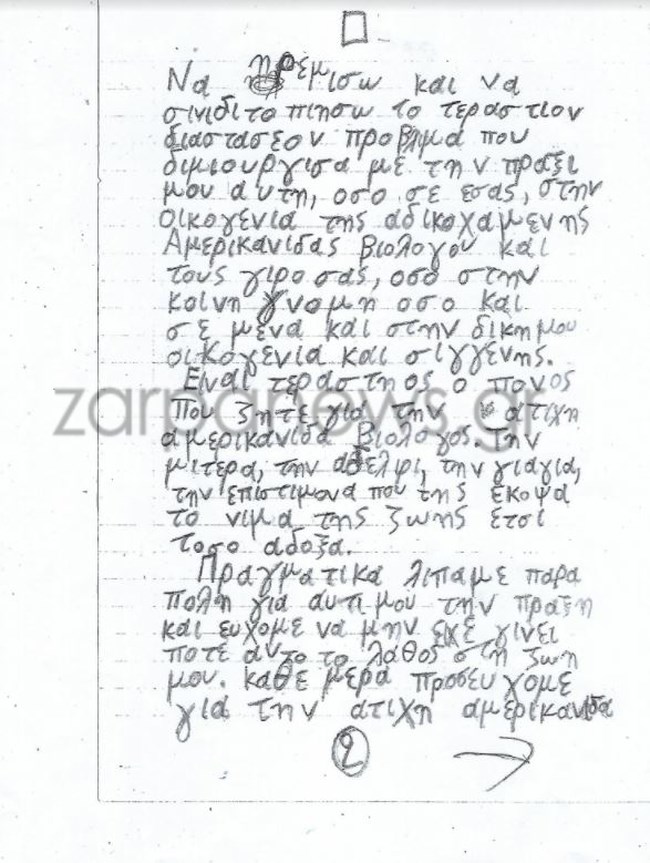 Να ηρεμισω και να
σινιδιτοπιησω το τεραστιον
διαστασεον προβλιμα που
διμιουργισα με την πραξι
μου αυτη, οσο σε εσας, στην
οικογενια της αδικοχαμενης
Αμερικανιδας βιολογου και
τους γιρο σας, οσο στην
κοινη γνομη οσο και
σε μενα και στην δικη μου
οικογενια και σιγγενης.
Ειναι τεραστηος ο πονος
που ζητε για την ατιχη
zarpanews.gr
αμερικανιδα βιολογος. Την
μιτερα, την αδελφι, την γιαγια,
την επιστιμονα που της εκοψα
το νιμα της ζωης ετσι
τοσο αδοξα.
Πραγματικα λιπαμε παρα
πολη για αυτι μου την πραξη
και ευχομε να μην ειχε γινει
ποτε αυτο το λαθος στη ζωη
μου. καθε μερα προσευχομε
για την ατιχη αμερικανιδα
2